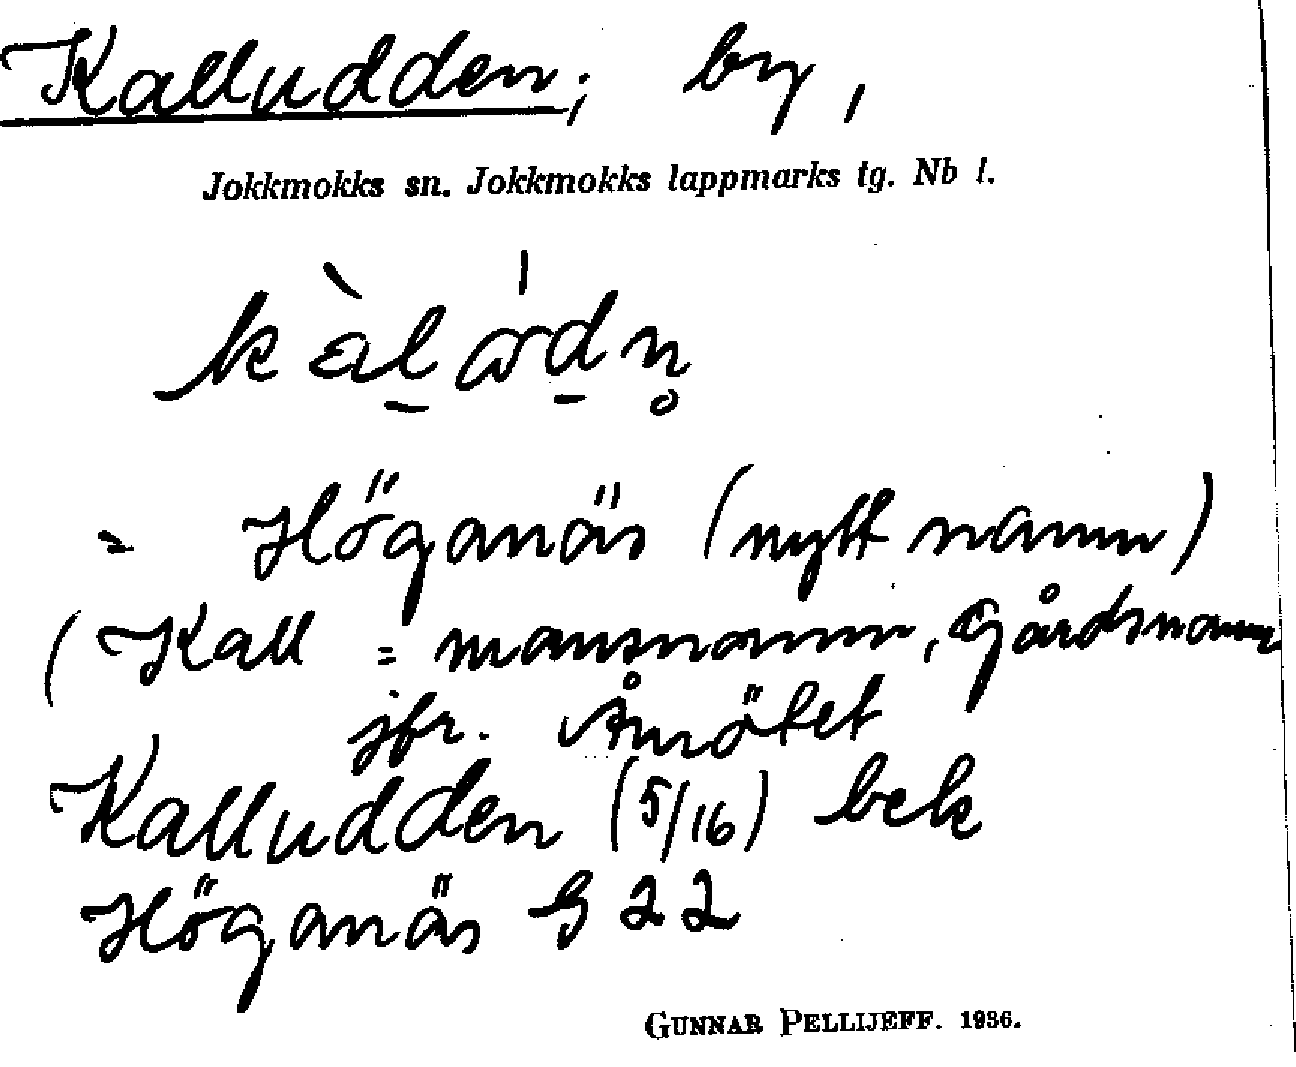 Kalludden; by,
Jokkmokks sn. Jokkmokks lappmarks tg. Nb l.
= Höganäs (nytt namn)
(Kall = mansnamn, Gårdsnamn
jfr. Åmötet
Kalludden (5/16) bek
Höganäs G 22
GUNNAR PELLIJEFF. 1936.